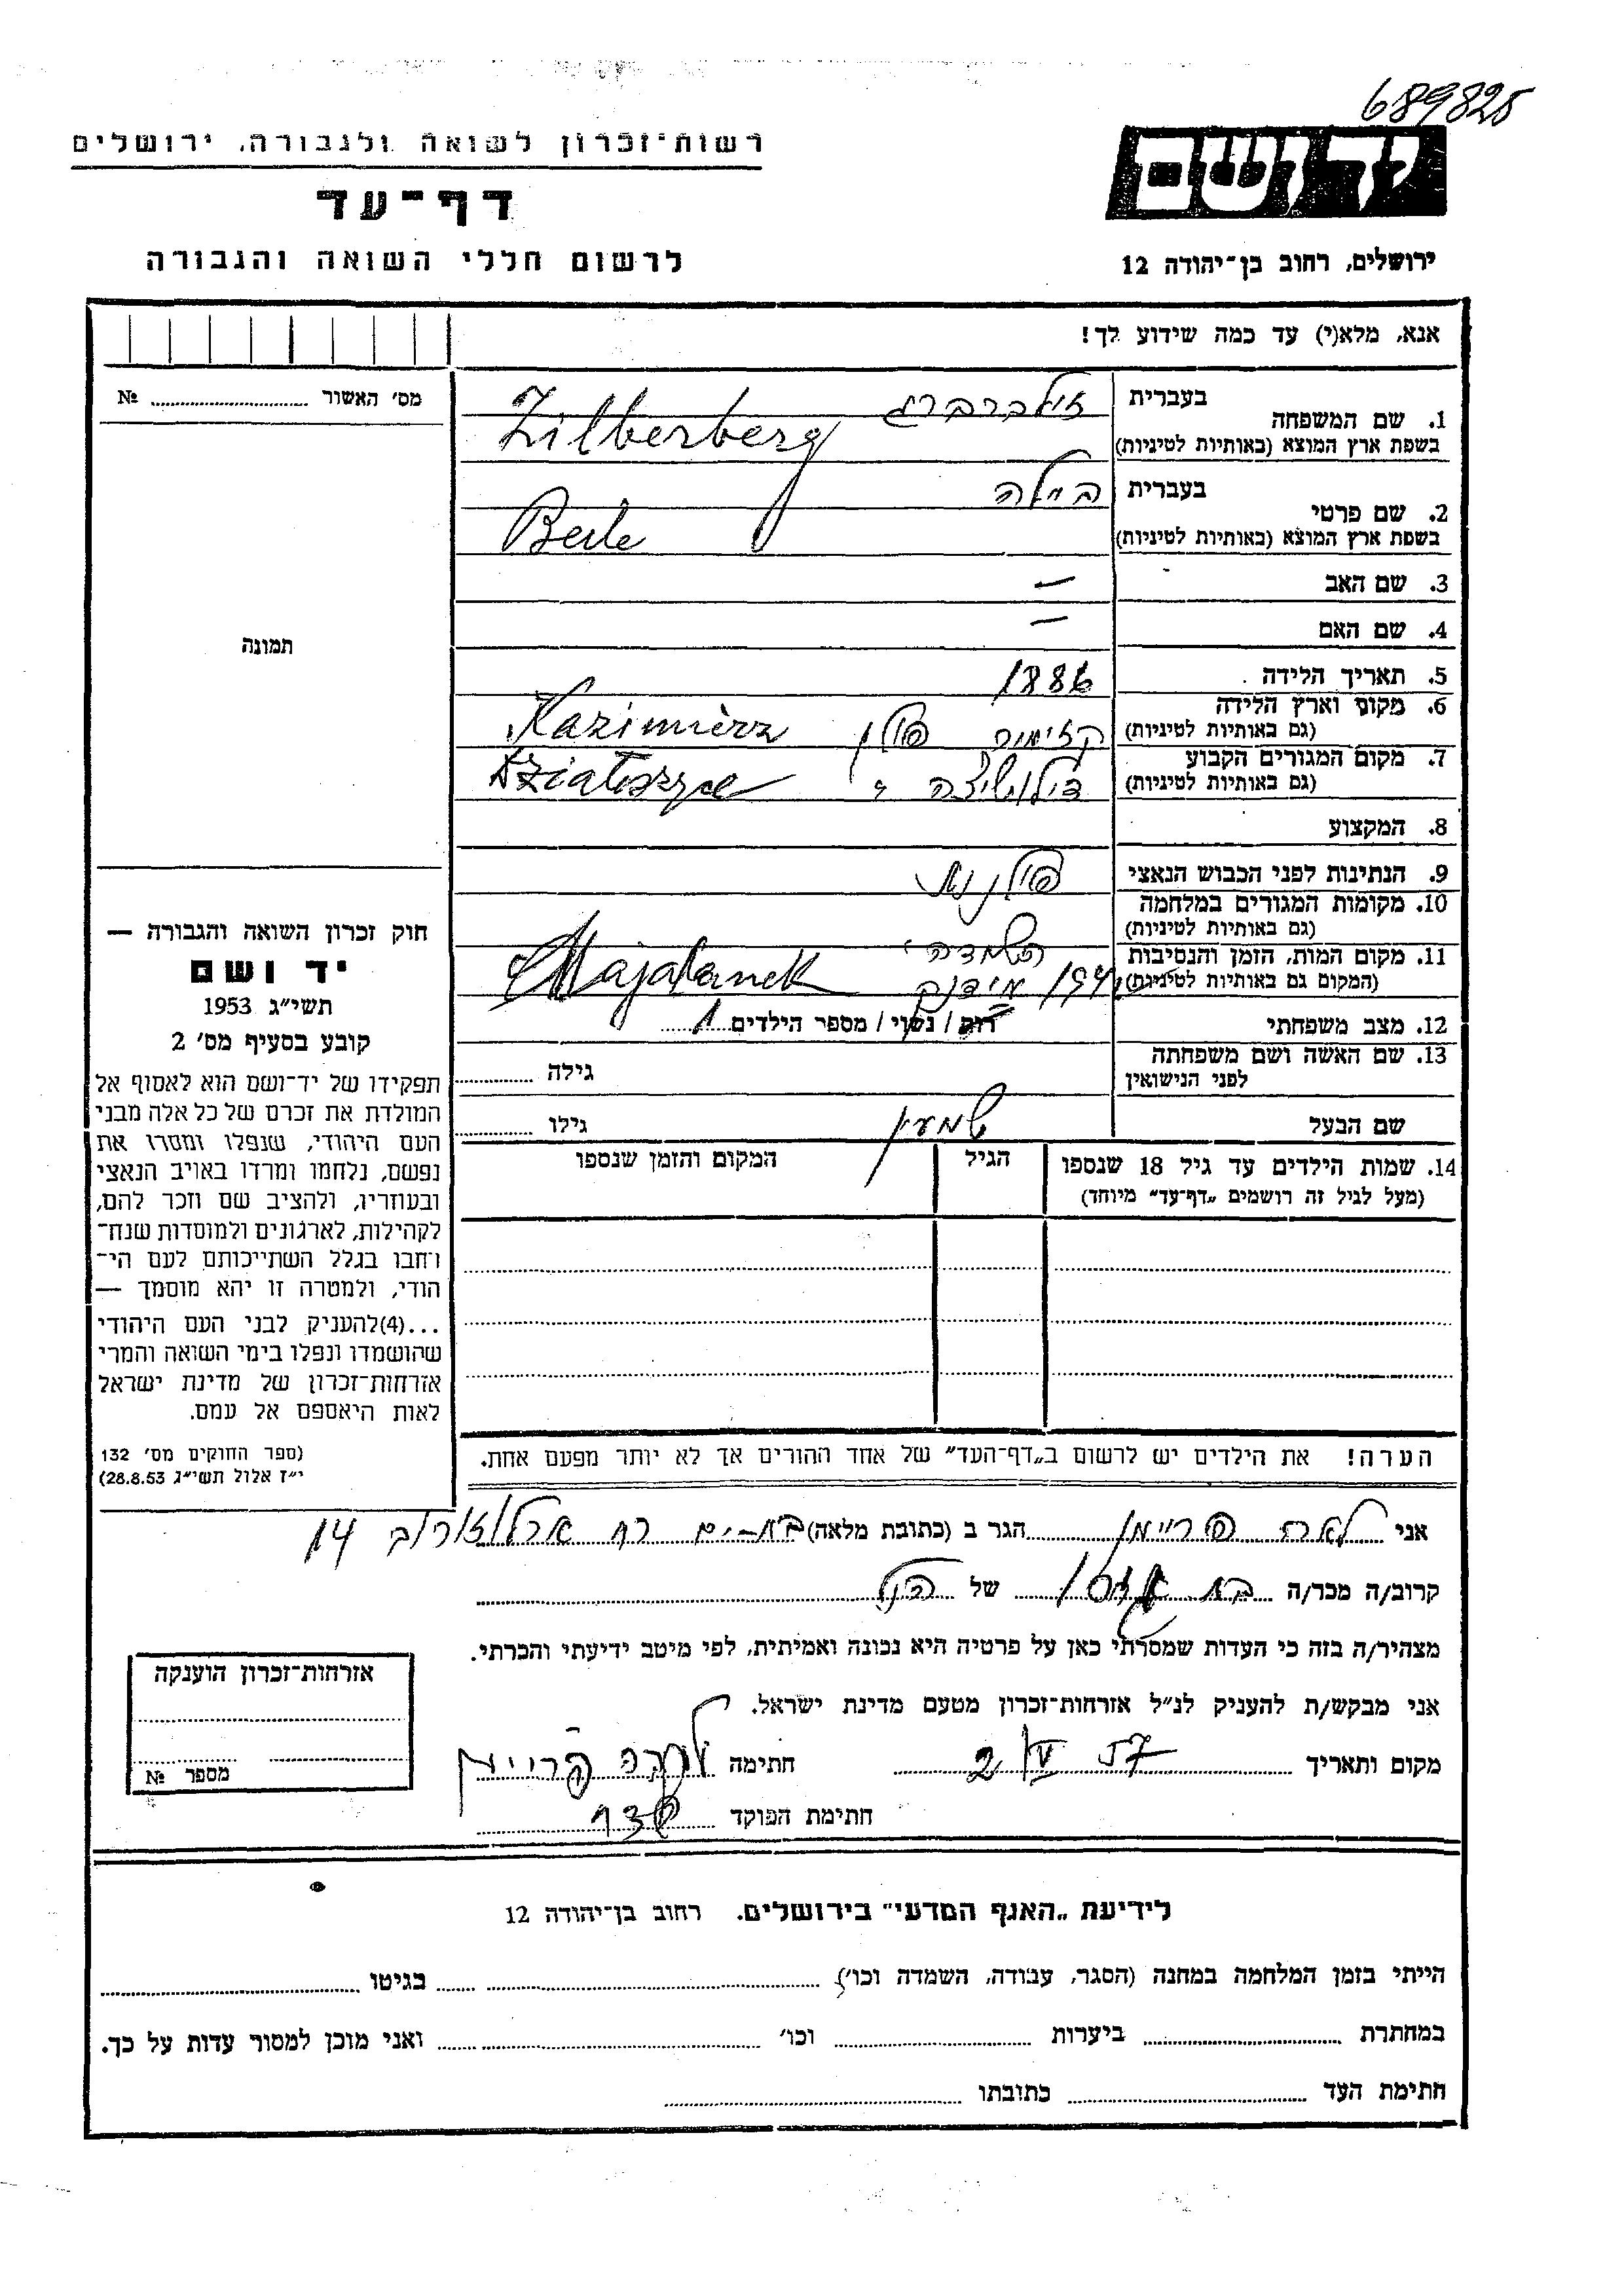 689825
רשות־זכרון לשואה ולגבורה, ירושלים
יד ושם
דף־עד
לרשום חללי השואה והגבורה
ירושלים, רחוב בן־יהודה 12
אנא, מלא(י) עד כמה שידוע לך!
מס׳ האשור № 
תמונה
1. שם המשפחה בעברית זילברברג
בשפת ארץ המוצא (באותיות לטיניות) Zilberberg
2. שם פרטי בעברית ביילה
בשפת ארץ המוצא (באותיות לטיניות) Beile
3. שם האב —
4. שם האם —
5. תאריך הלידה 1886
6. מקום וארץ הלידה
(גם באותיות לטיניות) פולין Kazimierz
7. מקום המגורים הקבוע
(גם באותיות לטיניות) Działoszyce
8. המקצוע
9. הנתינות לפני הכבוש הנאצי
10. מקומות המגורים במלחמה
(גם באותיות לטיניות)
11. מקום המות, הזמן והנסיבות
(המקום גם באותיות לטיניות) מידנק Majdanek
12. מצב משפחתי רוק / נשוי / מספר הילדים 1
13. שם האשה ושם משפחתה
לפני הנישואין גילה
שם הבעל שמעון גילו
14. שמות הילדים עד גיל 18 שנספו הגיל המקום והזמן שנספו
(מעל לגיל זה רושמים „דף־עד״ מיוחד)
הערה! את הילדים יש לרשום ב„דף־העד״ של אחד ההורים אך לא יותר מפעם אחת.
חוק זכרון השואה והגבורה —
יד ושם
תשי״ג 1953
קובע בסעיף מס׳ 2
תפקידו של יד־ושם הוא לאסוף אל
המולדת את זכרם של כל אלה מבני
העם היהודי, שנפלו ומסרו את
נפשם, נלחמו ומרדו באויב הנאצי
ובעוזריו, ולהציב שם וזכר להם,
לקהילות, לארגונים ולמוסדות שנח־
רחבו בגלל השתייכותם לעם הי־
הודי, ולמטרה זו יהא מוסמך —
...(4)להעניק לבני העם היהודי
שהושמדו ונפלו בימי השואה והמרי
אזרחות־זכרון של מדינת ישראל
לאות היאספם אל עמם.
(ספר החוקים מס׳ 132
י״ז אלול תשי״ג 28.8.53)
אני לאה פריימן הגר ב (כתובת מלאה) בת־ים רח ארלוזורוב 14
קרוב/ה מכר/ה בת של הנ״ל
מצהיר/ה בזה כי העדות שמסרתי כאן על פרטיה היא נכונה ואמיתית, לפי מיטב ידיעתי והכרתי.
אני מבקש/ת להעניק לנ״ל אזרחות־זכרון מטעם מדינת ישראל.
מקום ותאריך 2 57 חתימה לאה פריימן
חתימת הפוקד
אזרחות־זכרון הוענקה
מספר №
לידיעת „האגף המדעי״ בירושלים. רחוב בן־יהודה 12
הייתי בזמן המלחמה במחנה (הסגר, עבודה, השמדה וכו׳) בגיטו
במחתרת ביערות וכו׳ ואני מוכן למסור עדות על כך.
חתימת העד כתובתו